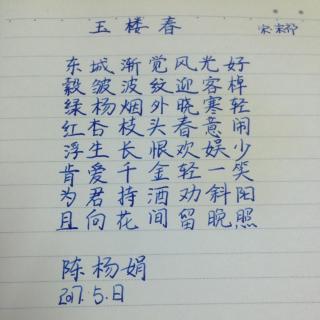 玉楼春 宋·宋祁
东城渐觉风光好
縠皱波纹迎客棹
绿杨烟外晓寒轻
红杏枝头春意闹
浮生长恨欢娱少
肯爱千金轻一笑
为君持酒劝斜阳
且向花间留晚照
陈杨娟
2017.5.日